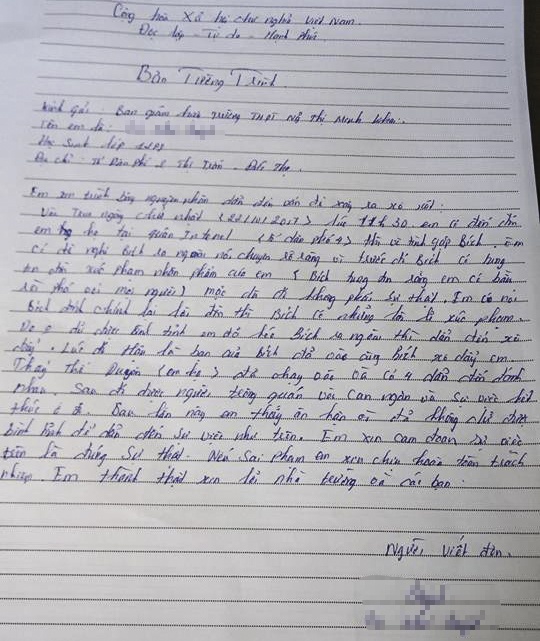 Cộng hòa Xã hội chủ nghĩa Việt Nam
Độc lập - Tự do - Hạnh phúc
Bản Tường Trình
Kính gửi: Ban giám hiệu trường THPT Nguyễn Thị Minh Khai
Tên em là:
Học sinh lớp
Địa chỉ: Tổ Dân phố 2 Thị Trấn - Đức Thọ
Em xin trình bày nguyên nhân dẫn đến vấn đề xảy ra xô xát:
Vào Trưa ngày chủ nhật 11h 30 em có đến đón
em họ tại quán Internet (tổ dân phố 4) thì vô tình gặp Bích. Em
có đề nghị Bích ra ngoài nói chuyện rõ ràng vì trước đó Bích có tung
tin đồn xúc phạm nhân phẩm của em (Bích tung tin rằng em có bầu
rồi phá với mọi người) mặc dù đó không phải sự thật. Em có nói
Bích đính chính lại lời đồn thì Bích có những lời lẽ xúc phạm.
Do đó chưa bình tĩnh em đã kéo Bích ra ngoài thì dẫn đến xô
xát. Lúc đó Hân là bạn của Bích đã vào cùng Bích xô đẩy em.
Thấy thế Duyên (em họ) đã chạy vào và có dẫn đến đánh
nhau. Sau đó được người trong quán vào can ngăn và sự việc kết
thúc ở đó. Sau lần này em thấy ân hận vì đã không giữ được
bình tĩnh để dẫn đến sự việc như trên. Em xin cam đoan sự việc
trên là đúng sự thật. Nếu sai phạm em xin chịu hoàn toàn trách
nhiệm. Em thành thật xin lỗi nhà trường và các bạn.
Người viết đơn.